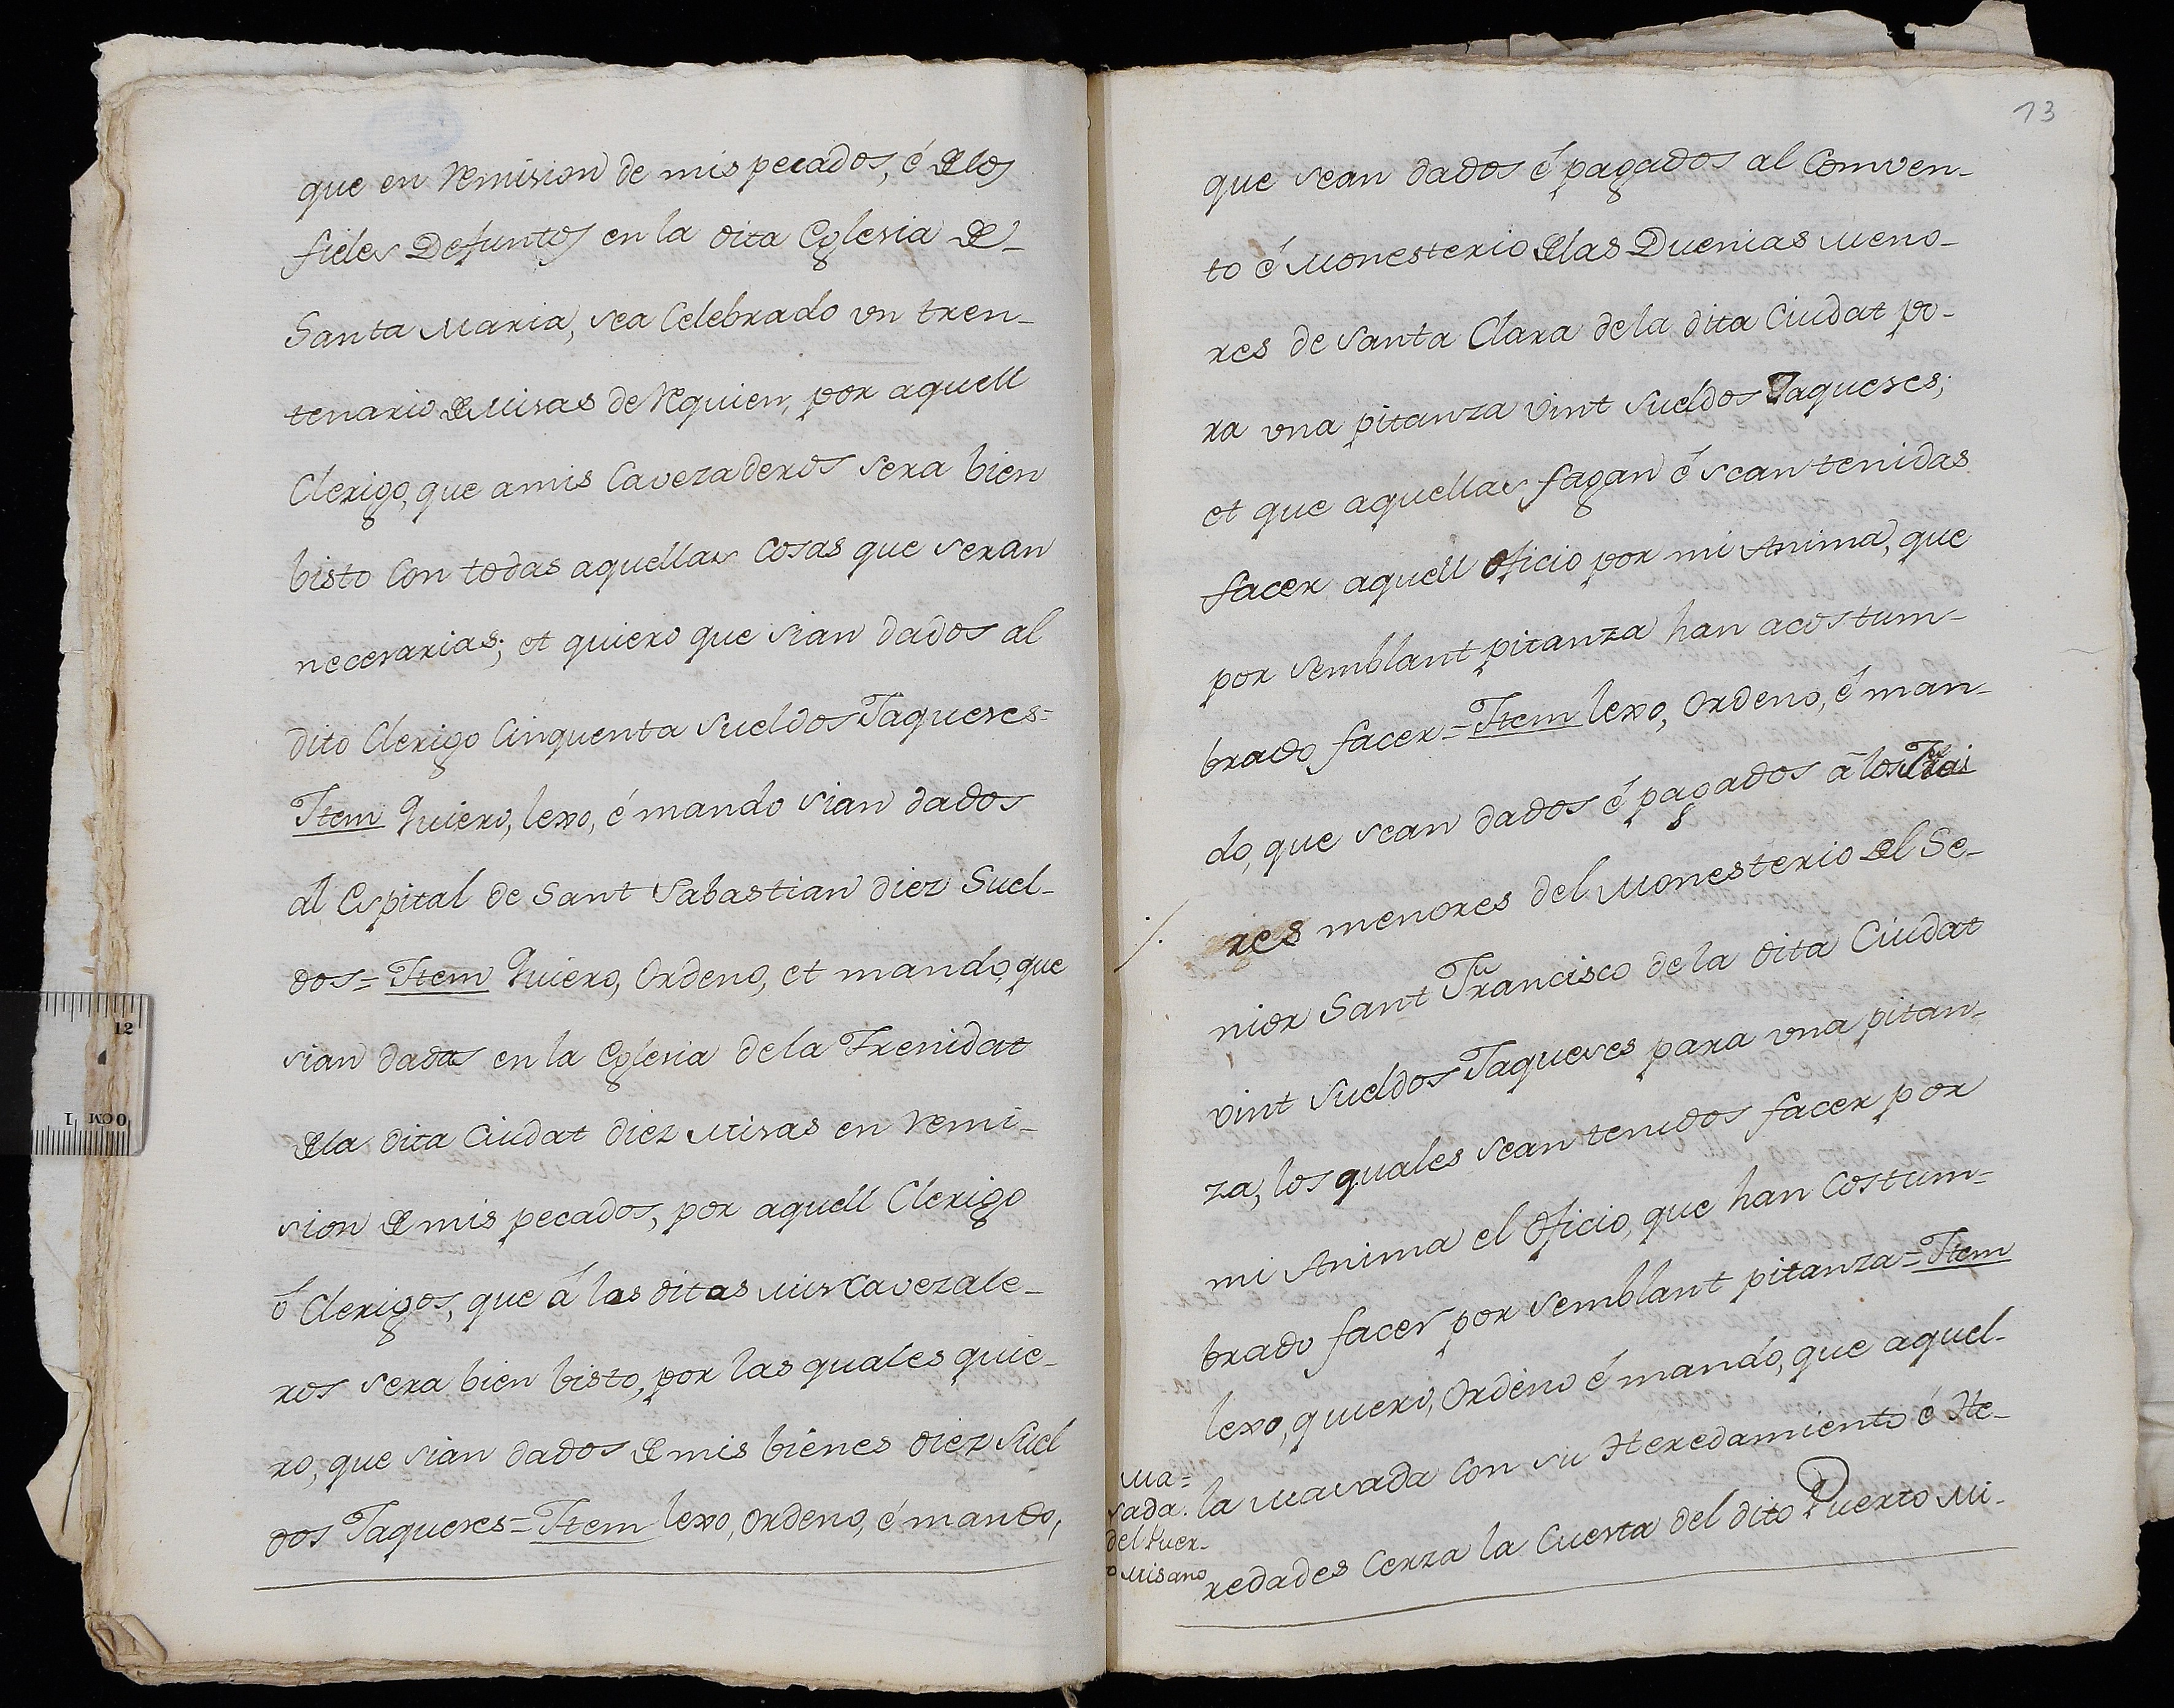 que en remision de mis pecados, é de los
fieles Defuntos en la dita Eglesia de
Santa Maria, sea Celebrado vn tren-
tenario de Misas de Requien, por aquell
Clerigo, que a mis Cavezaderos sera bien
bisto Con todas aquellas Cosas que seran
necesarias; et quiero que sian dados al
dito Clerigo Cinquenta sueldos Jaqueses=
Item Quiero, lexo, é mando sian dados
al Espital de Sant Sabastian diez Suel-
dos= Item Quiero, Ordeno, et mando, que
sian dadas en la Eglesia de la Trenidat
de la dita Ciudat diez Misas en remi-
sion de mis pecados, por aquell Clerigo
ó Clerigos, que á las ditas mis Cavezale-
ros sera bien bisto, por las quales quie-
ro, que sian dados de mis bienes diez suel
dos Jaqueses= Item lexo, Ordeno, é mando,
13
que sean dados é pagados al Comven-
to é Monesterio de las Duenias Meno-
res de Santa Clara de la dita Ciudat pa-
ra vna pitanza vint sueldos Jaqueses;
et que aquellas fagan é sean tenidas
facer aquell Oficio por mi Anima, que
por semblant pitanza han acostum-
brado facer= Item lexo, Ordeno, é man-
do, que sean dados é pagados á los Frai
res menores del Monesterio del Se-
nior Sant Francisco de la dita Ciudat
vint Sueldos Jaqueses para vna pitan-
za, los quales sean tenidos facer por
mi Anima el Oficio, que han Costum-
brado facer por semblant pitanza= Item
lexo, quiero, Ordeno é mando, que aquel-
la Masada Con su Heredamiento é He-
redades Cerza la Cuesta del dito Puerto Mi-
Ma=
sada.
del Puer-
o Misano